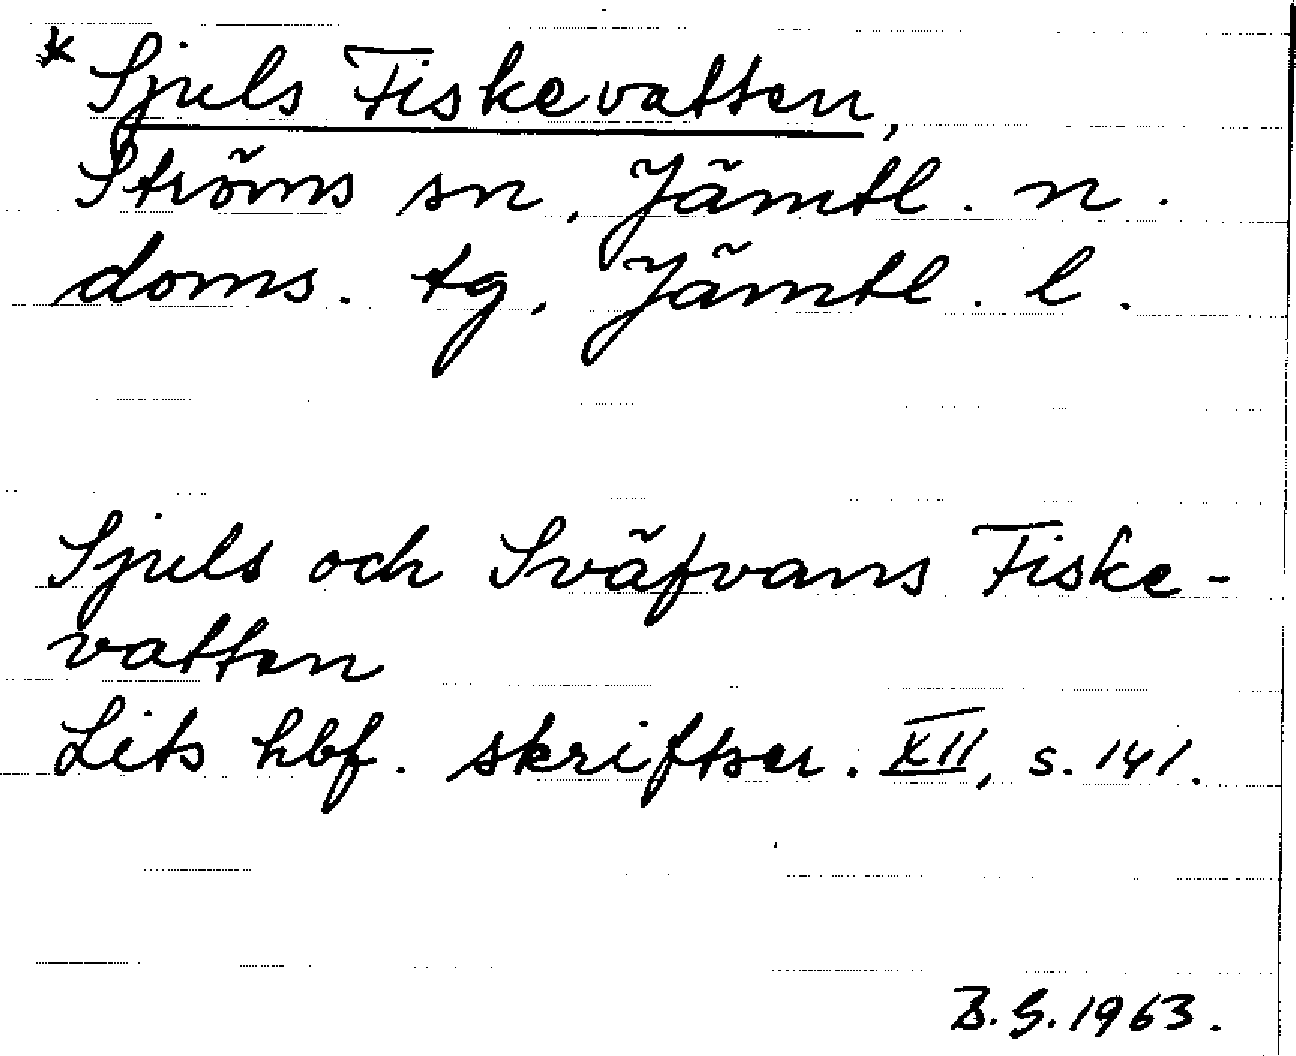 * Sjuls Fiskevatten,
Ströms sn, Jämtl. n.
doms. tg, Jämtl. l.
Sjuls och Sväfvans Fiske-
vatten
Lits hbf. skriftser. XII, s. 141.
B.G. 1963.